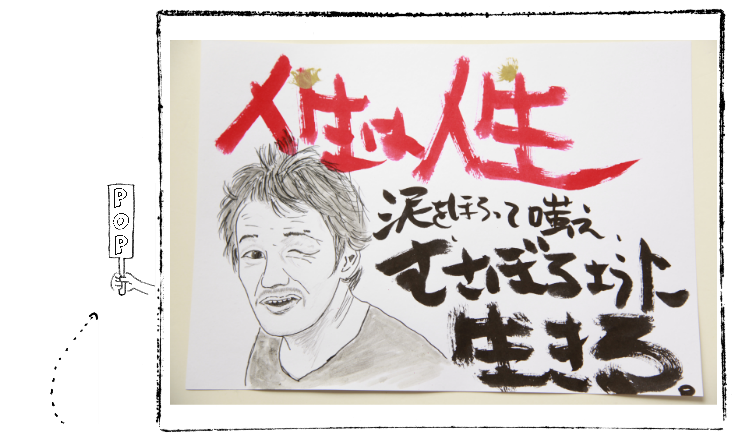 POP
人生は人生
泥をほろって嗤え
むさぼるように
生きる。